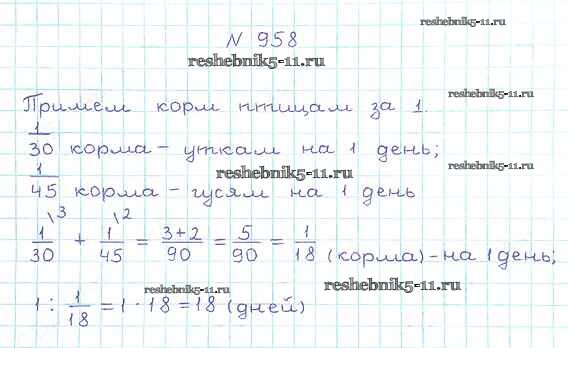 reshebnik5-11.ru
N 958
reshebnik5-11.ru
reshebnik5-11.ru
Примем корм птицам за 1.
1/30 корма - уткам на 1 день;
reshebnik5-11.ru
reshebnik5-11.ru
1/45 корма - гусям на 1 день
1/30 \3 + 1/45 \2 = 3+2/90 = 5/90 = 1/18 (корма) - на 1 день;
reshebnik5-11.ru
reshebnik5-11.ru
1 : 1/18 = 1 · 18 = 18 (дней)